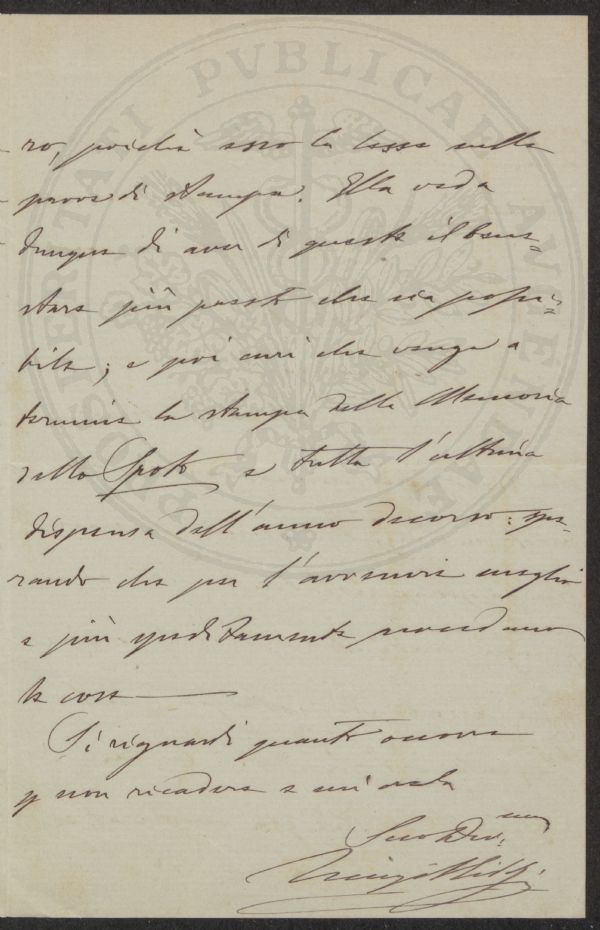 POSTERITATI PVBLICAE AVREN
ro, poichè esso la lesse nelle
prove di stampa. Ella veda
dunque di aver di queste il benes-
stare più presto che sia possi-
bile; e poi curi che venga a
termine la stampa della Memoria
dello Spoto e tutta l'ultima
dispensa dell'anno decorso: spe-
rando che per l'avvenire meglio
e più speditamente procedano
le cose
Si riguardi quanto occorre
p non ricadere e mi creda
Suo Dev.mo